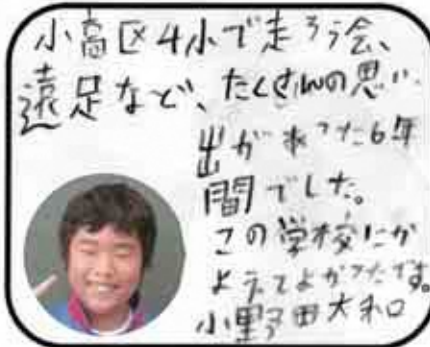 小高区4小で走ろう会、
遠足など、たくさんの思い
出があった6年
間でした。
この学校にか
よえてよかったです。
小野田大和